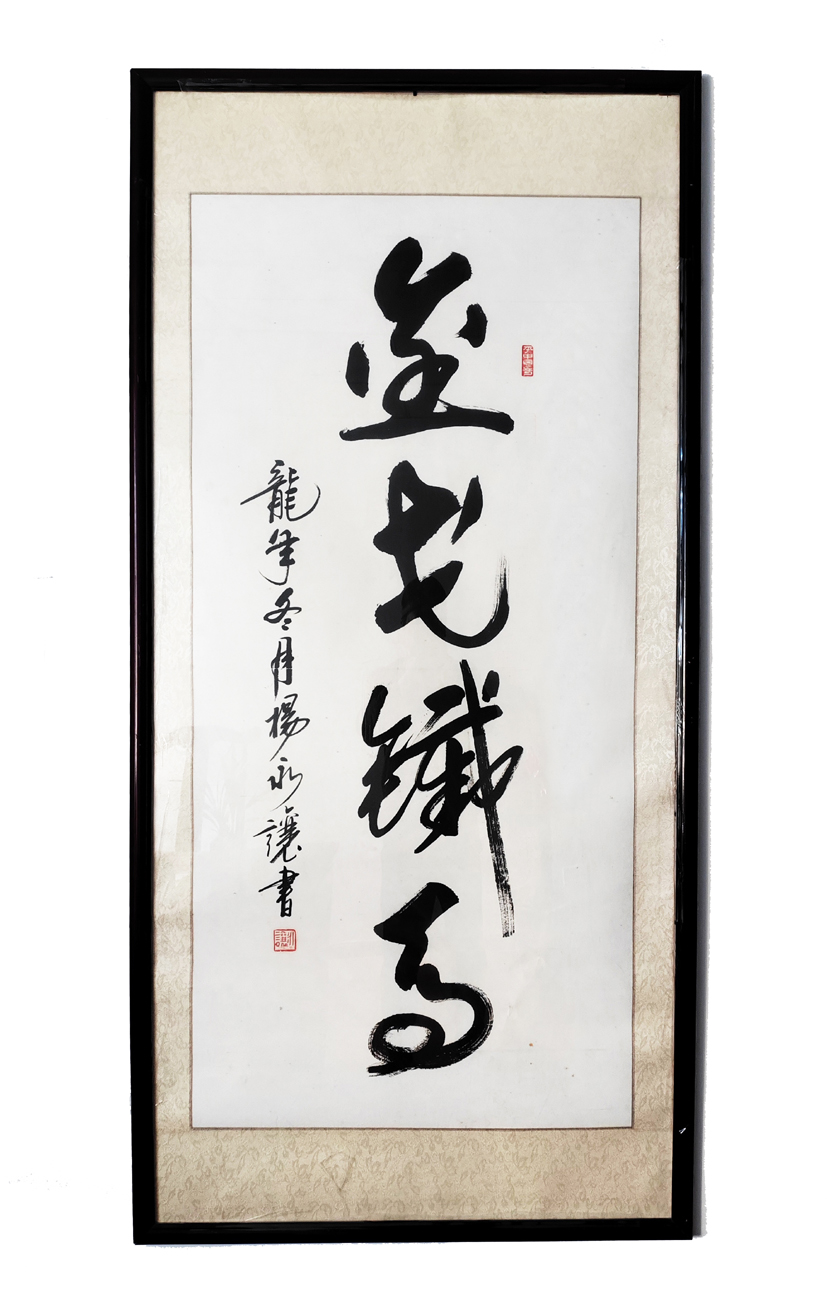 金戈鐵馬
龍年冬月楊永讓書